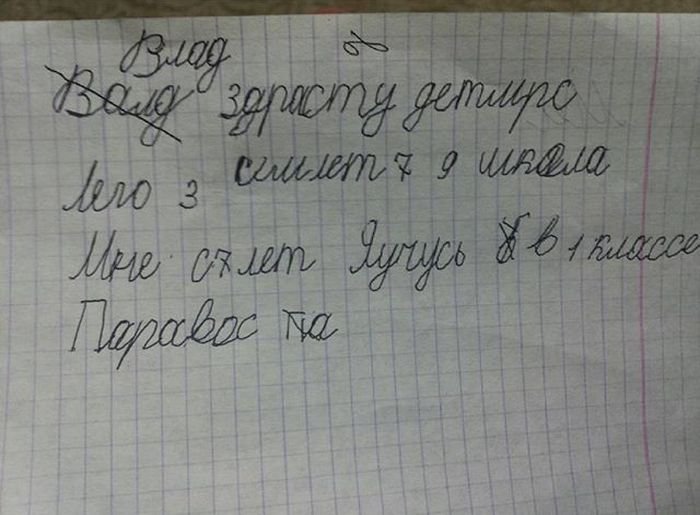 Влад
Валд здрасту детмрс
Лего з симлет 7 9 школа
Мне с7лет Яучусь в 1 классе
Паравос па